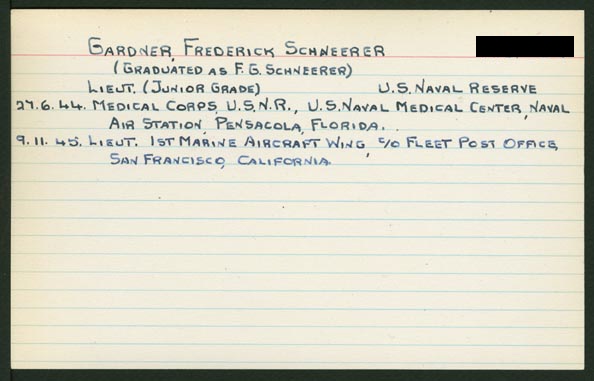 GARDNER, FREDERICK SCHNEERER
(GRADUATED AS F.G. SCHNEERER)
LIEUT. (JUNIOR GRADE) U.S. NAVAL RESERVE
27.6.44. MEDICAL CORPS, U.S.N.R., U.S. NAVAL MEDICAL CENTER, NAVAL
AIR STATION, PENSACOLA, FLORIDA.
9.11.45. LIEUT. 1ST MARINE AIRCRAFT WING, C/O FLEET POST OFFICE,
SAN FRANCISCO, CALIFORNIA.